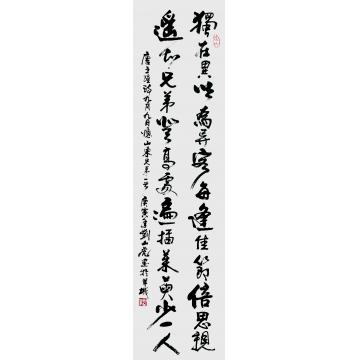 獨在異鄉為异客每逢佳節倍思親
遙知兄弟登高處遍插茱萸少一人
唐王維詩九月九日憶山東兄弟一首 庚寅劉山書於羊城